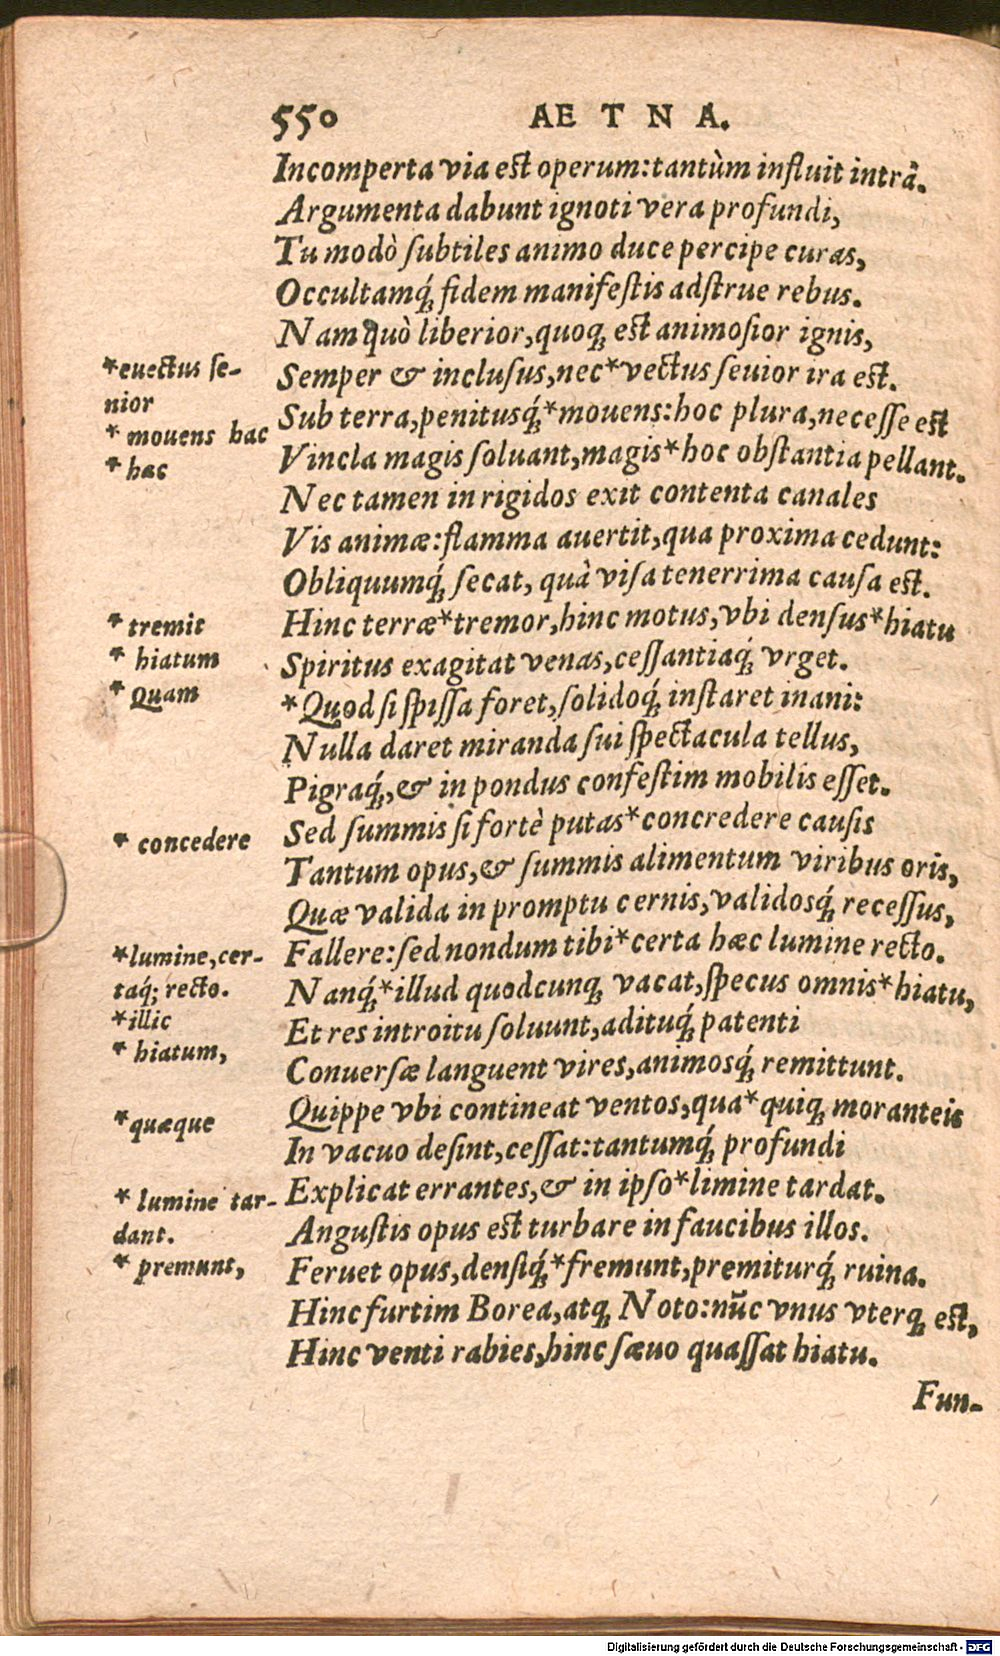 550 AETNA.
Incomperta via est operum:tantùm influit intrâ.
Argumenta dabunt ignoti vera profundi,
Tu modò ſubtiles animo duce percipe curas,
Occultamq́; fidem manifeſtis adſtrue rebus.
Nam quò liberior,quoq; est animoſior ignis,
*euectus ſe-
nior
Semper & incluſus,nec*vectus ſeuior ira est.
* mouens hac
Sub terra,penitusq́;*mouens:hoc plura,neceſſe est
* hac
Vincla magis ſoluant,magis*hoc obſtantia pellant.
Nec tamen in rigidos exit contenta canales
Vis animæ:flamma auertit,qua proxima cedunt:
Obliquumq́; ſecat, quà viſa tenerrima cauſa est.
* tremit
Hinc terræ*tremor,hinc motus,vbi denſus*hiatu
* hiatum
Spiritus exagitat venas,ceſſantiaq́; vrget.
* Quam
*Quod ſi ſpiſſa foret,ſolidoq́; inſtaret inani:
Nulla daret miranda ſui ſpectacula tellus,
Pigraq́;,& in pondus confeſtim mobilis eſſet.
* concedere
Sed ſummis ſi fortè putas*concredere cauſis
Tantum opus,& ſummis alimentum viribus oris,
Quæ valida in promptu cernis,validosq́; receſſus,
*lumine,cer-
taq́; recto.
Fallere:ſed nondum tibi*certa hæc lumine recto.
*illic
Nanq́;*illud quodcunq; vacat,ſpecus omnis*hiatu,
* hiatum,
Et res introitu ſoluunt,adituq́; patenti
Conuerſæ languent vires,animosq́; remittunt.
*quæque
Quippe vbi contineat ventos,qua*quiq; moranteis
In vacuo deſint,ceſſat:tantumq́; profundi
* lumine tar-
dant.
Explicat errantes,& in ipſo*limine tardat.
Anguſtis opus est turbare in faucibus illos.
* premunt,
Feruet opus,denſiq́;*fremunt,premiturq́; ruina.
Hinc furtim Borea,atq; Noto:nũc vnus vterq; est,
Hinc venti rabies,hinc ſæuo quaſſat hiatu.
Fun-
Digitalisierung gefördert durch die Deutsche Forschungsgemeinschaft - DFG